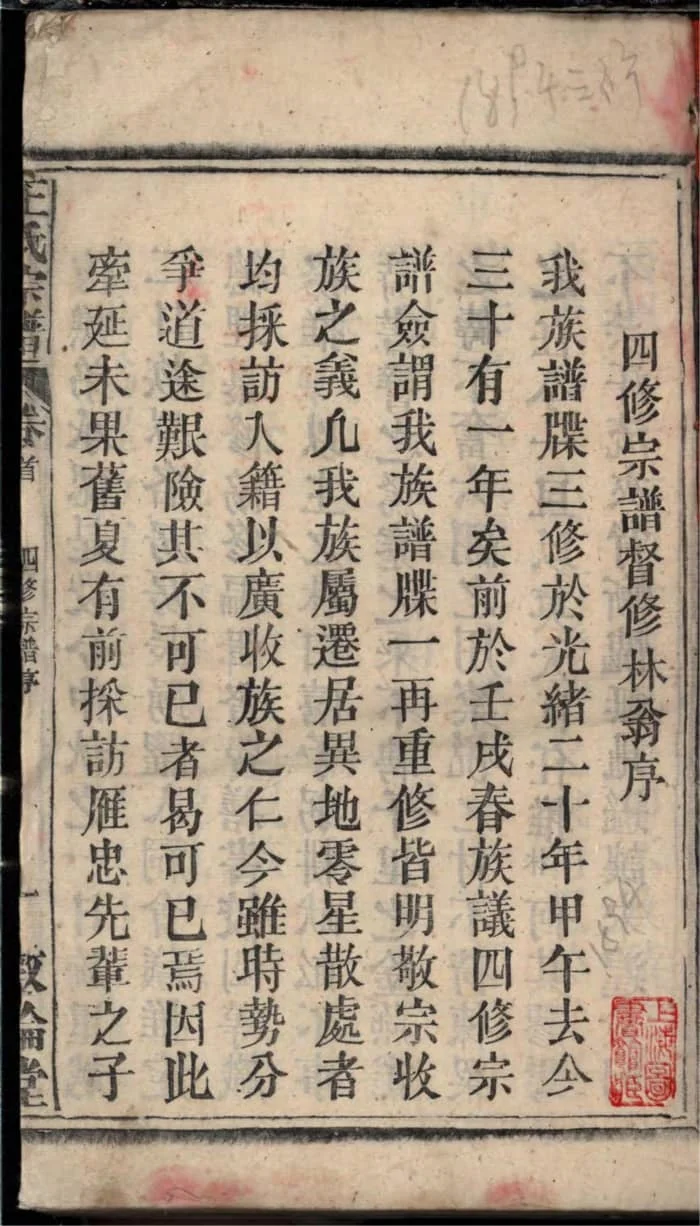 四修宗譜督修林翁序
我族譜牒三修於光緒二十年甲午去今
三十有一年矣前於壬戌春族議四修宗
譜僉謂我族譜牒一再重修皆明敬宗收
族之義凡我族屬遷居異地零星散處者
均採訪入籍以廣收族之仁今雖時勢分
爭道途艱險其不可已者曷可已焉因此
牽延未果舊夏有前採訪雁忠先輩之子
王氏宗譜
卷首
四修宗譜序
一
敦倫堂